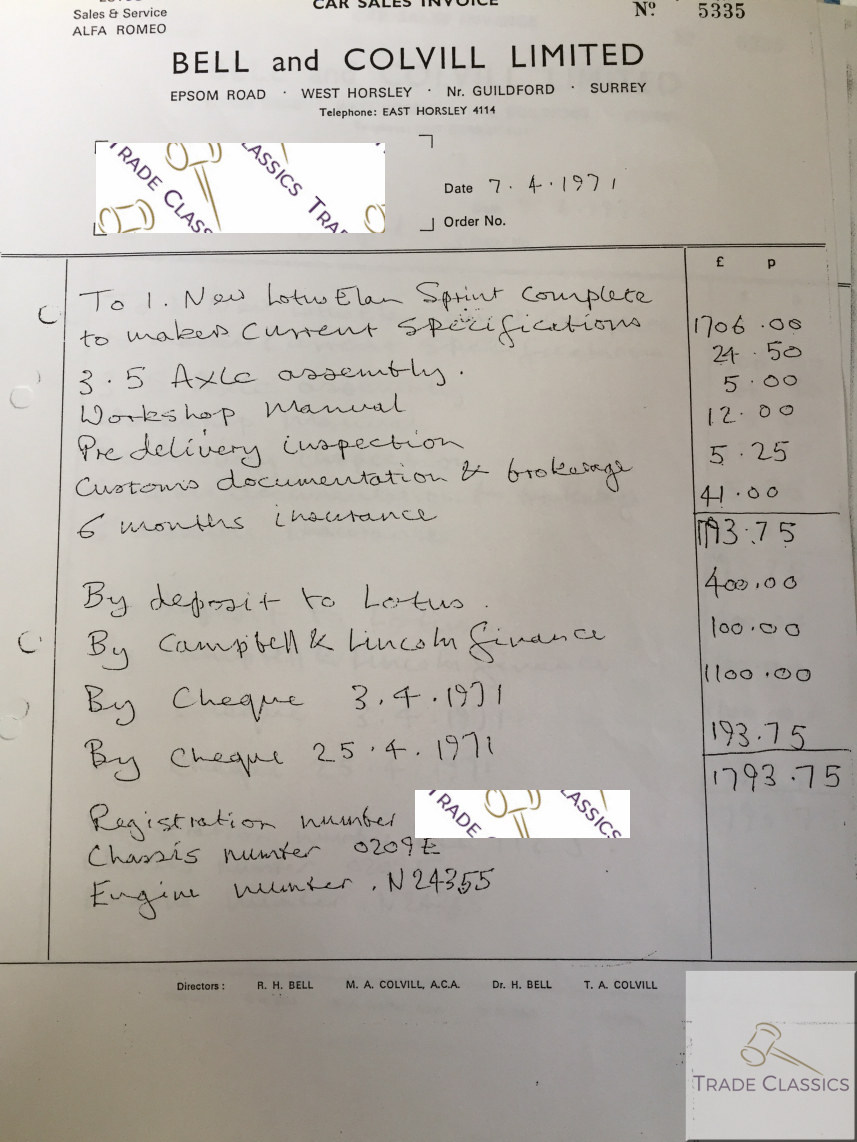 Sales & Service
ALFA ROMEO
CAR SALES INVOICE
No. 5335
BELL and COLVILL LIMITED
EPSOM ROAD · WEST HORSLEY · Nr. GUILDFORD · SURREY
Telephone: EAST HORSLEY 4114
TRADE CLASSICS
CLASSICS TRA
Date 7.4.1971
Order No.
£ p
To 1. New Lotus Elan Sprint complete
to makers current specifications 1706.00
3.5 Axle assembly. 24.50
Workshop Manual 5.00
Pre delivery inspection 12.00
Customs documentation & brokerage 5.25
6 months insurance 41.00
1793.75
By deposit to Lotus. 400.00
By Campbell & Lincoln finance 100.00
By Cheque 3.4.1971 1100.00
By Cheque 25.4.1971 193.75
1793.75
Registration number
TRADE
CLASSICS
Chassis number 0209E
Engine number. N24355
Directors: R. H. BELL M. A. COLVILL, A.C.A. Dr. H. BELL T. A. COLVILL
TRADE CLASSICS